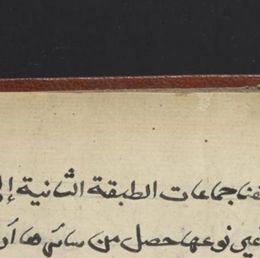 جماعات الطبقة الثانية
نوعها حصل من سائرها